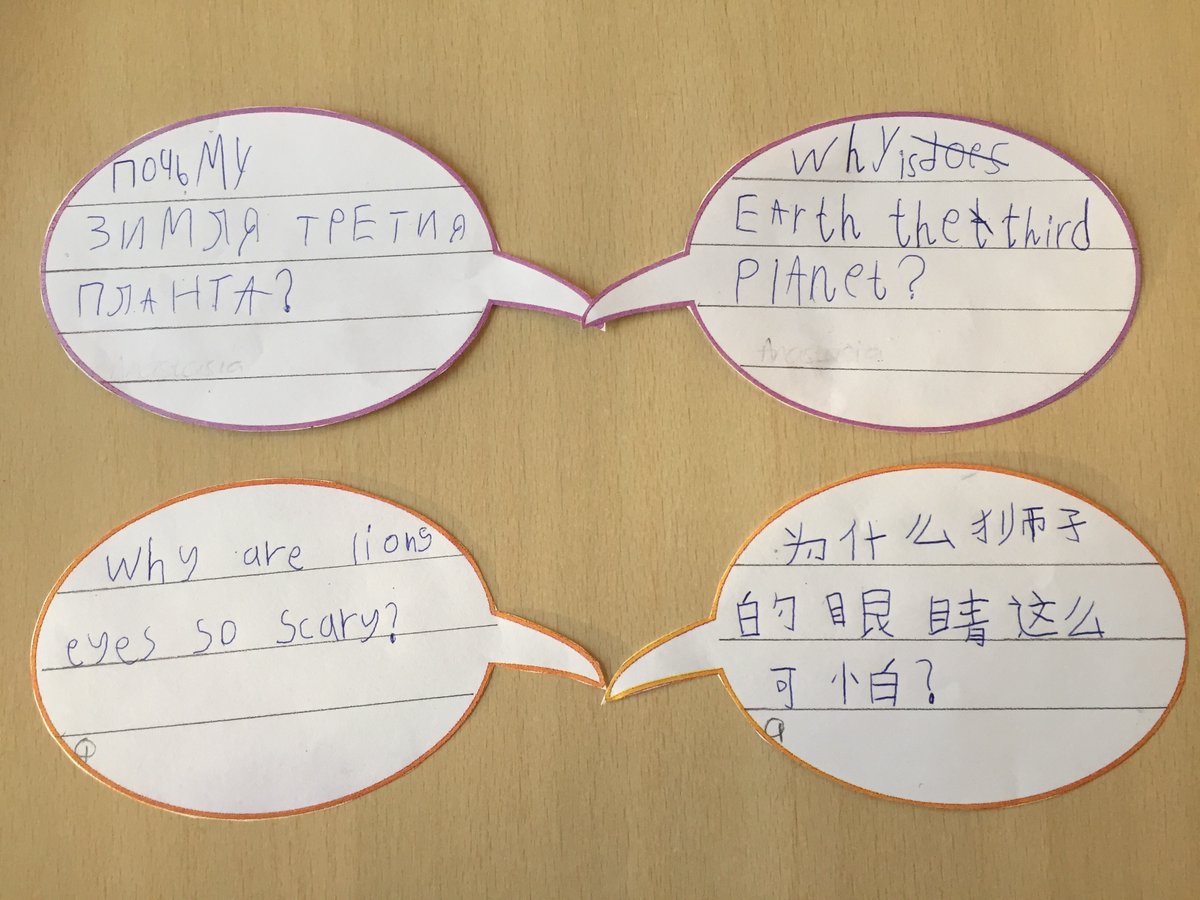 почьму
ЗИМЛЯ ТРЕТИЯ
ПЛАНТА?
Anastasia
why is does
EArth the third
PlAnet?
Anastasia
Why are lions
eyes so scary?
为什么狮子
的眼睛这么
可怕?